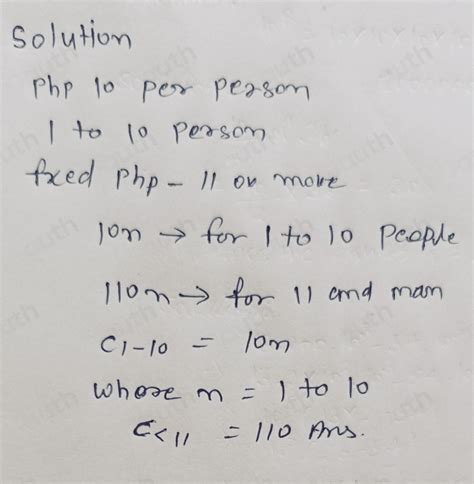 Solution
Php 10 per person
1 to 10 person
fixed Php - 11 or more
10n → for 1 to 10 people
110n → for 11 and man
C1-10 = 10n
Whose n = 1 to 10
C<11 = 110 Ans.